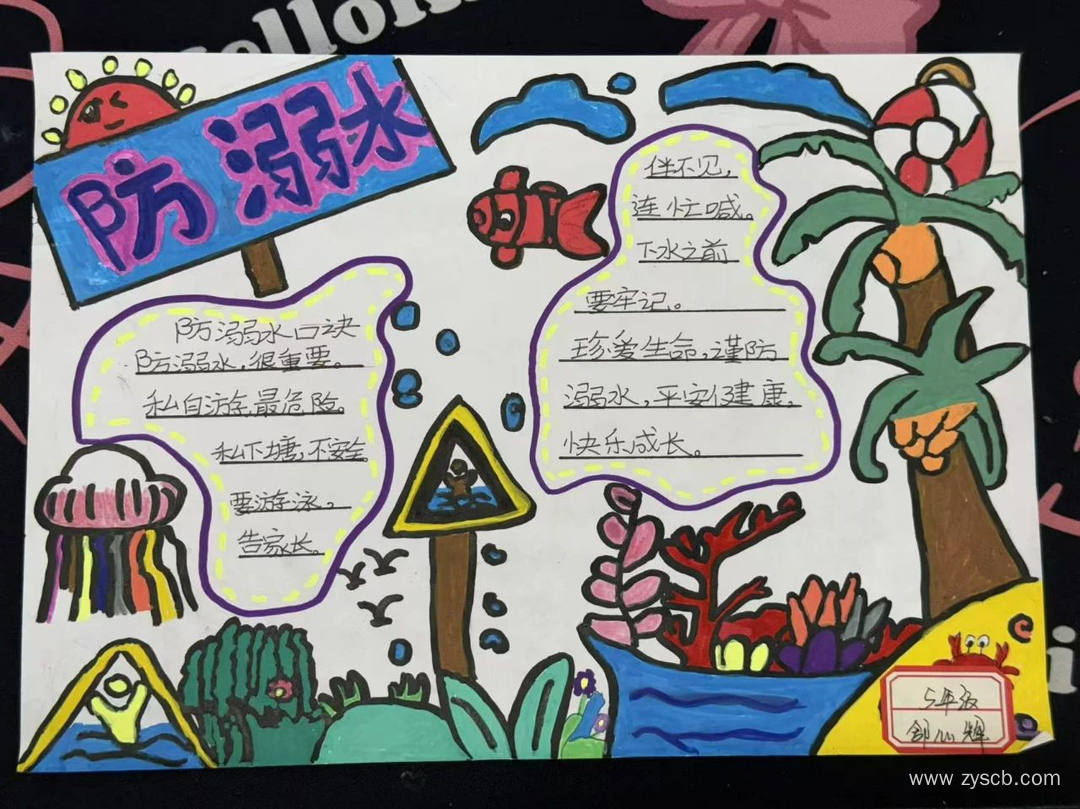 防溺水
防溺水口诀
防溺水,很重要。
私自游泳最危险。
私下塘,不安全。
要游泳,
告家长。
伴不见,
连忙喊。
下水之前
要牢记。
珍爱生命,谨防
溺水,平安健康,
快乐成长。
5年级
www.zyscb.com